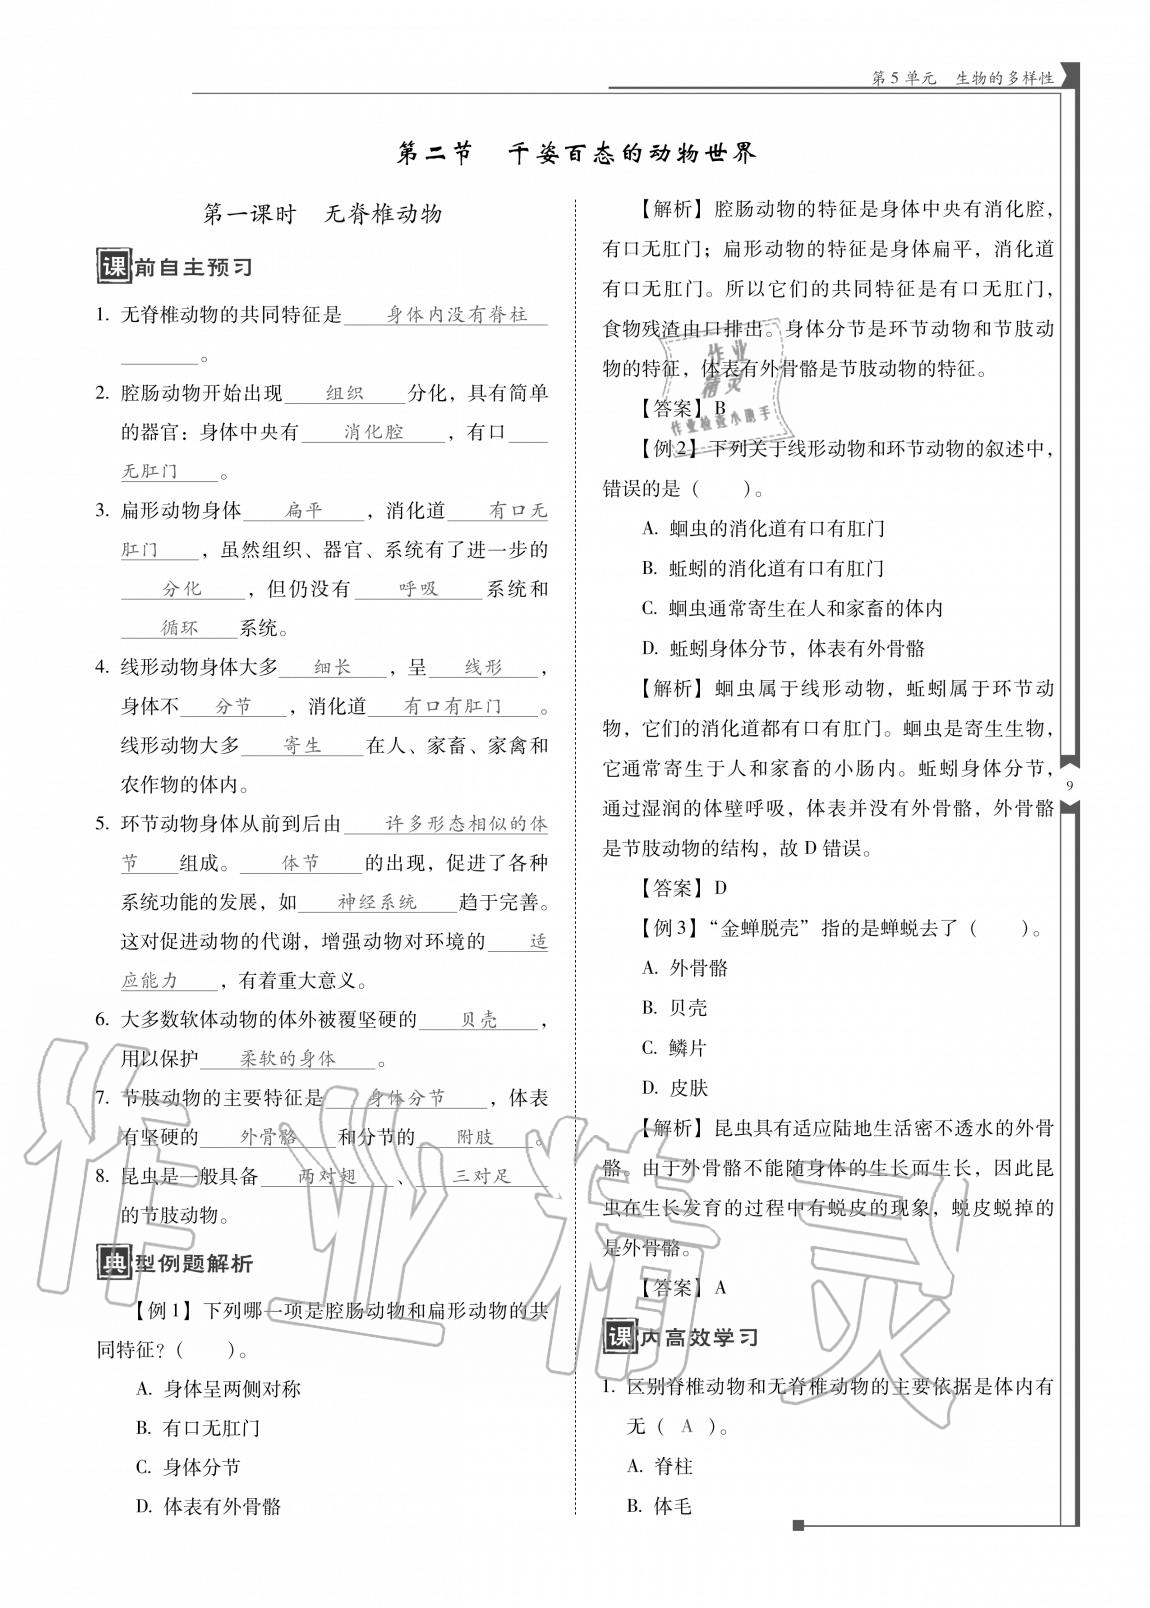 第5单元 生物的多样性
第二节 千姿百态的动物世界
第一课时 无脊椎动物
课前自主预习
1. 无脊椎动物的共同特征是 身体内没有脊柱
。
2. 腔肠动物开始出现 组织 分化，具有简单
的器官：身体中央有 消化腔 ，有口
无肛门 。
3. 扁形动物身体 扁平 ，消化道 有口无
肛门 ，虽然组织、器官、系统有了进一步的
分化 ，但仍没有 呼吸 系统和
循环 系统。
4. 线形动物身体大多 细长 ，呈 线形 ，
身体不 分节 ，消化道 有口有肛门 。
线形动物大多 寄生 在人、家畜、家禽和
农作物的体内。
5. 环节动物身体从前到后由 许多形态相似的体
节 组成。 体节 的出现，促进了各种
系统功能的发展，如 神经系统 趋于完善。
这对促进动物的代谢，增强动物对环境的 适
应能力 ，有着重大意义。
6. 大多数软体动物的体外被覆坚硬的 贝壳 ，
用以保护 柔软的身体 。
7. 节肢动物的主要特征是 身体分节 ，体表
有坚硬的 外骨骼 和分节的 附肢 。
8. 昆虫是一般具备 两对翅 、 三对足
的节肢动物。
典型例题解析
【例1】下列哪一项是腔肠动物和扁形动物的共
同特征？（ ）。
A. 身体呈两侧对称
B. 有口无肛门
C. 身体分节
D. 体表有外骨骼
【解析】腔肠动物的特征是身体中央有消化腔，
有口无肛门；扁形动物的特征是身体扁平，消化道
有口无肛门。所以它们的共同特征是有口无肛门，
食物残渣由口排出。身体分节是环节动物和节肢动
物的特征，体表有外骨骼是节肢动物的特征。
【答案】B
【例2】下列关于线形动物和环节动物的叙述中，
错误的是（ ）。
A. 蛔虫的消化道有口有肛门
B. 蚯蚓的消化道有口有肛门
C. 蛔虫通常寄生在人和家畜的体内
D. 蚯蚓身体分节，体表有外骨骼
【解析】蛔虫属于线形动物，蚯蚓属于环节动
物，它们的消化道都有口有肛门。蛔虫是寄生生物，
它通常寄生于人和家畜的小肠内。蚯蚓身体分节，
通过湿润的体壁呼吸，体表并没有外骨骼，外骨骼
是节肢动物的结构，故D错误。
【答案】D
【例3】“金蝉脱壳”指的是蝉蜕去了（ ）。
A. 外骨骼
B. 贝壳
C. 鳞片
D. 皮肤
【解析】昆虫具有适应陆地生活密不透水的外骨
骼。由于外骨骼不能随身体的生长而生长，因此昆
虫在生长发育的过程中有蜕皮的现象，蜕皮蜕掉的
是外骨骼。
【答案】A
课内高效学习
1. 区别脊椎动物和无脊椎动物的主要依据是体内有
无（ A ）。
A. 脊柱
B. 体毛
9
作业
精灵
作业检查小助手
作业精灵